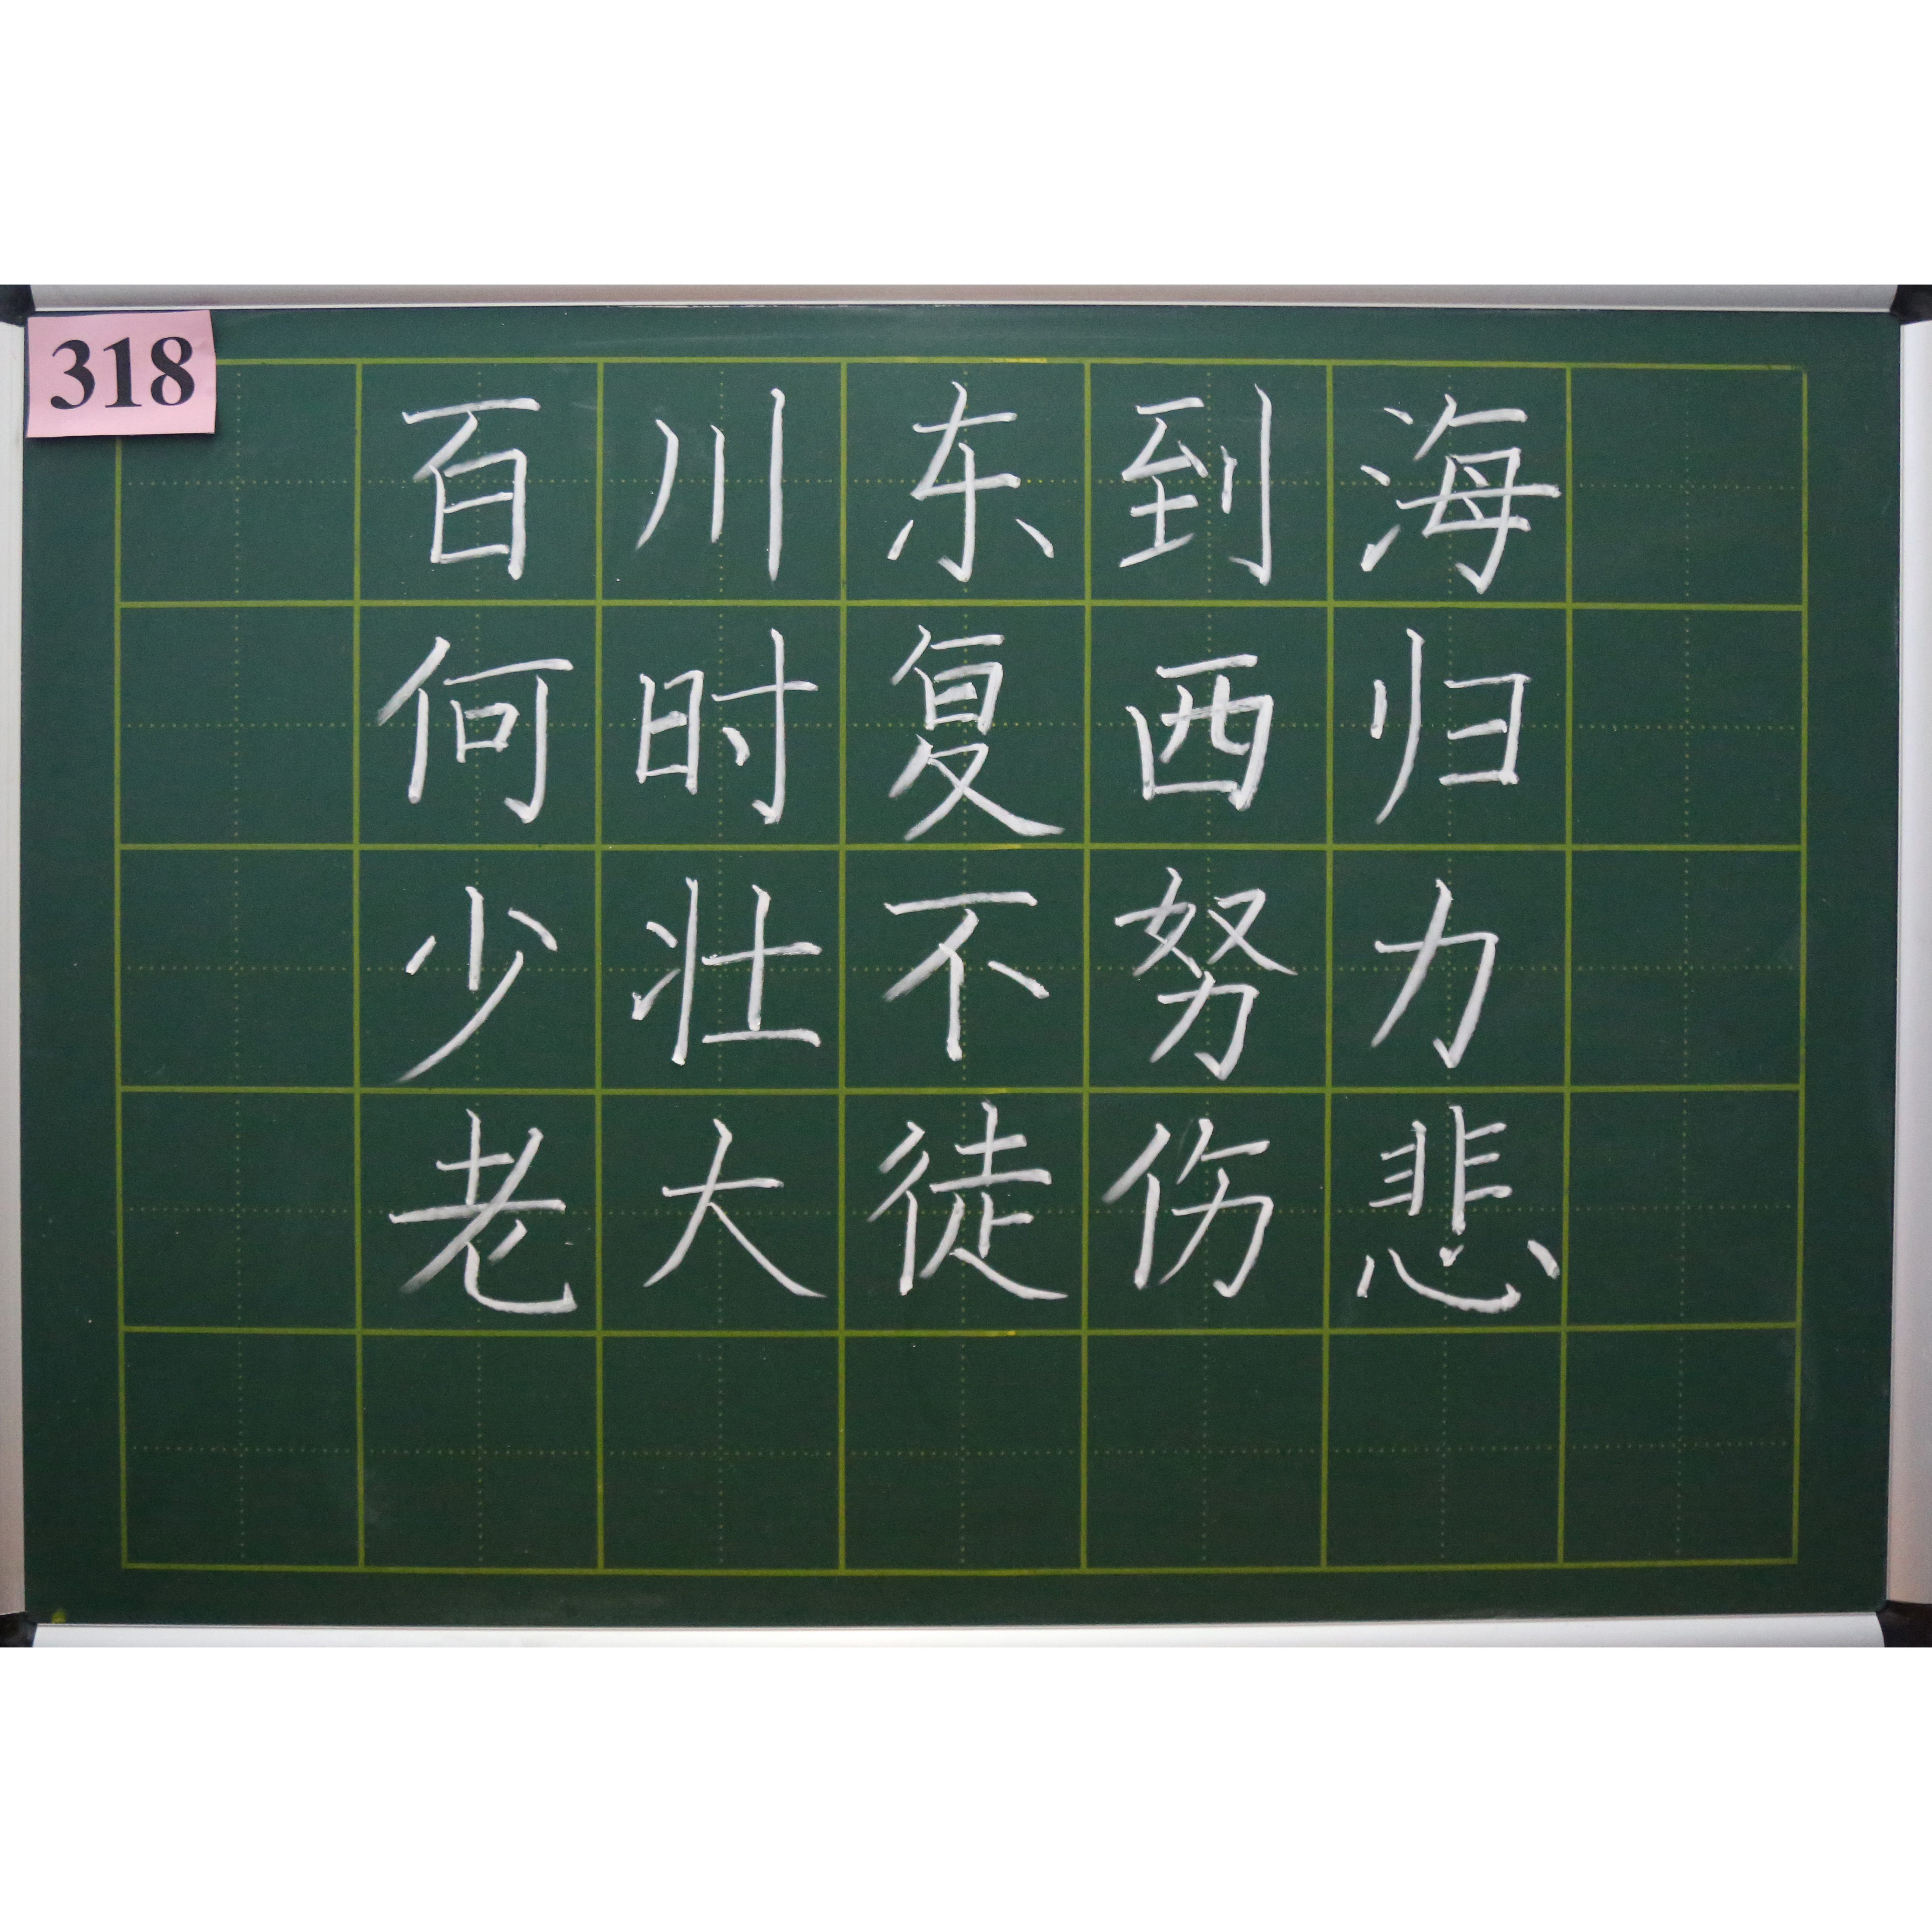 318
百川东到海
何时复西归
少壮不努力
老大徒伤悲